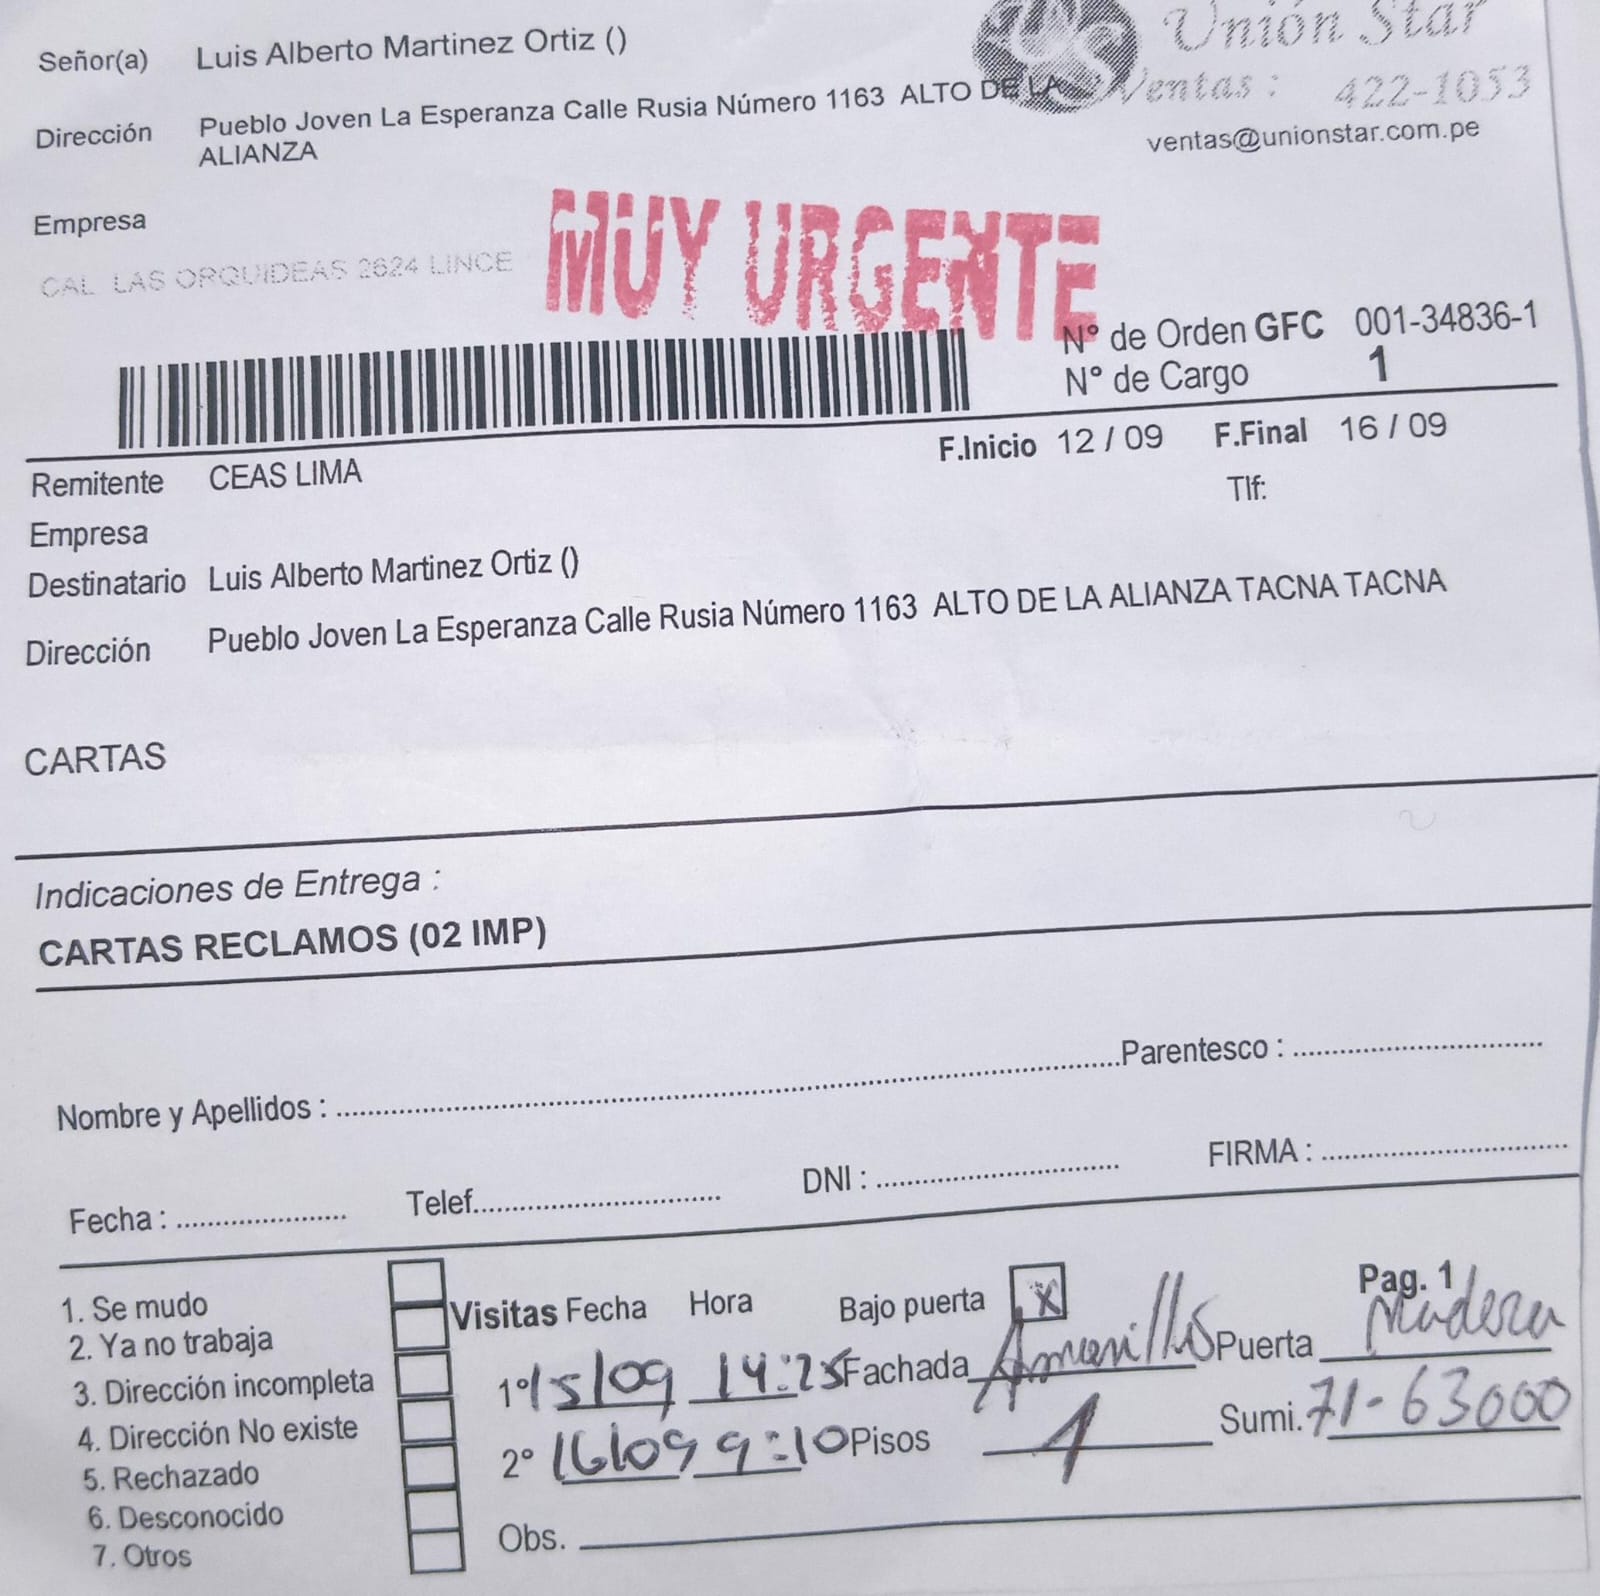 Señor(a) Luis Alberto Martinez Ortiz ()
Unión Star
Ventas : 422-1053
ventas@unionstar.com.pe
Dirección Pueblo Joven La Esperanza Calle Rusia Número 1163 ALTO DE LA
ALIANZA
Empresa
CAL LAS ORQUIDEAS 2624 LINCE
MUY URGENTE
N° de Orden GFC 001-34836-1
N° de Cargo 1
F.Inicio 12 / 09 F.Final 16 / 09
Remitente CEAS LIMA
Tlf:
Empresa
Destinatario Luis Alberto Martinez Ortiz ()
Dirección Pueblo Joven La Esperanza Calle Rusia Número 1163 ALTO DE LA ALIANZA TACNA TACNA
CARTAS
Indicaciones de Entrega :
CARTAS RECLAMOS (02 IMP)
Nombre y Apellidos : Parentesco :
Fecha : Telef. DNI : FIRMA :
1. Se mudo
2. Ya no trabaja
3. Dirección incompleta
4. Dirección No existe
5. Rechazado
6. Desconocido
7. Otros
Visitas Fecha Hora Bajo puerta X Pag. 1
1° 15/09 14:25 Fachada Amarillo Puerta Madera
2° 16/09 9:10 Pisos 1 Sumi. 71-63000
Obs.